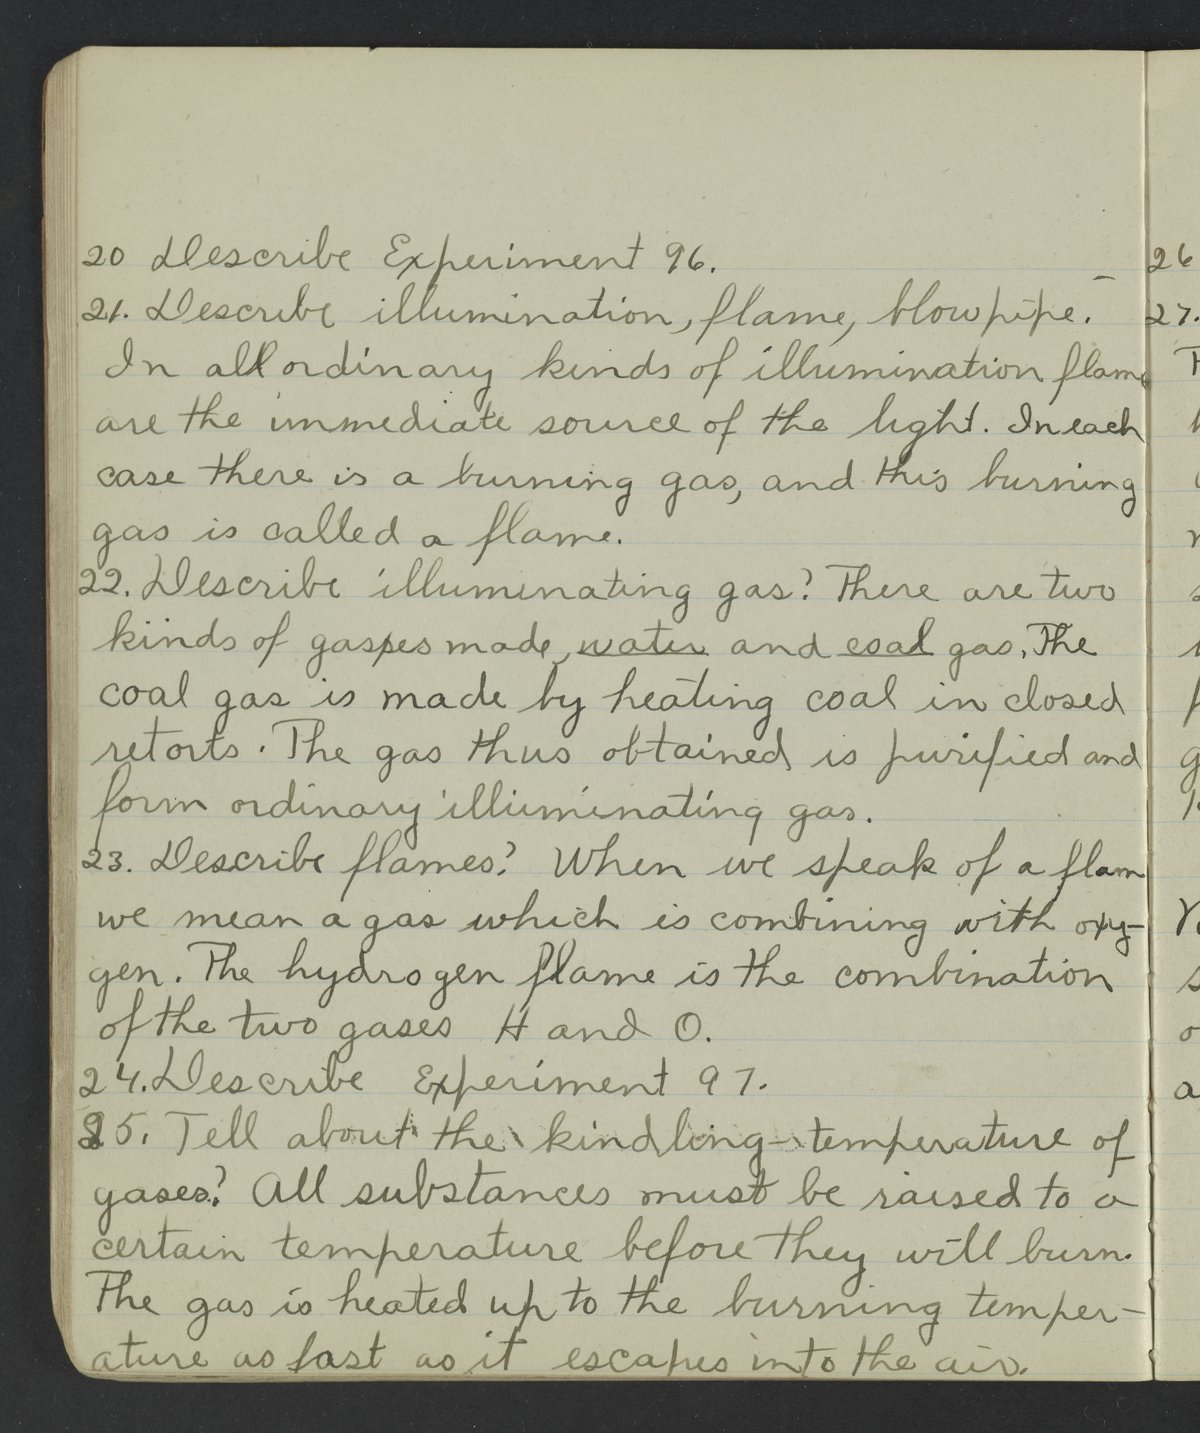 20 Describe Experiment 96.
21. Describe illumination, flame, blowpipe. –
In all ordinary kinds of illumination flame
are the immediate source of the light. In each
case there is a burning gas, and this burning
gas is called a flame.
22. Describe illuminating gas? There are two
kinds of gasses made, water and coal gas. The
coal gas is made by heating coal in closed
retorts. The gas thus obtained is purified and
form ordinary illiuminating gas.
23. Describe flames? When we speak of a flam
we mean a gas which is combining with oxy-
gen. The hydrogen flame is the combination
of the two gases H and O.
24. Describe Experiment 97.
25. Tell about the kindling-temperature of
gases? All substances must be raised to a
certain temperature before they will burn.
The gas is heated up to the burning temper-
ature as fast as it escapes into the air.
26
27.